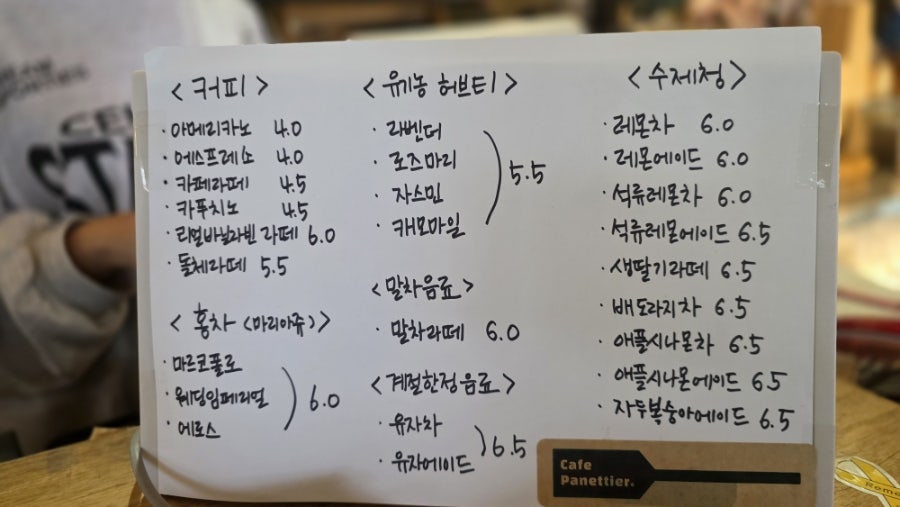 <커피>
· 아메리카노 4.0
· 에스프레소 4.0
· 카페라떼 4.5
· 카푸치노 4.5
· 리얼바닐라빈 라떼 6.0
· 돌체라떼 5.5
<홍차 <마리아쥬>>
· 마르코폴로
· 웨딩임페리얼
· 에로스
6.0
<유기농 허브티>
· 라벤더
· 로즈마리
· 자스민
· 캐모마일
5.5
<말차음료>
· 말차라떼 6.0
<계절한정음료>
· 유자차
· 유자에이드
6.5
<수제청>
· 레몬차 6.0
· 레몬에이드 6.0
· 석류레몬차 6.0
· 석류레몬에이드 6.5
· 생딸기라떼 6.5
· 배도라지차 6.5
· 애플시나몬차 6.5
· 애플시나몬에이드 6.5
· 자두복숭아에이드 6.5
Cafe
Panettier.